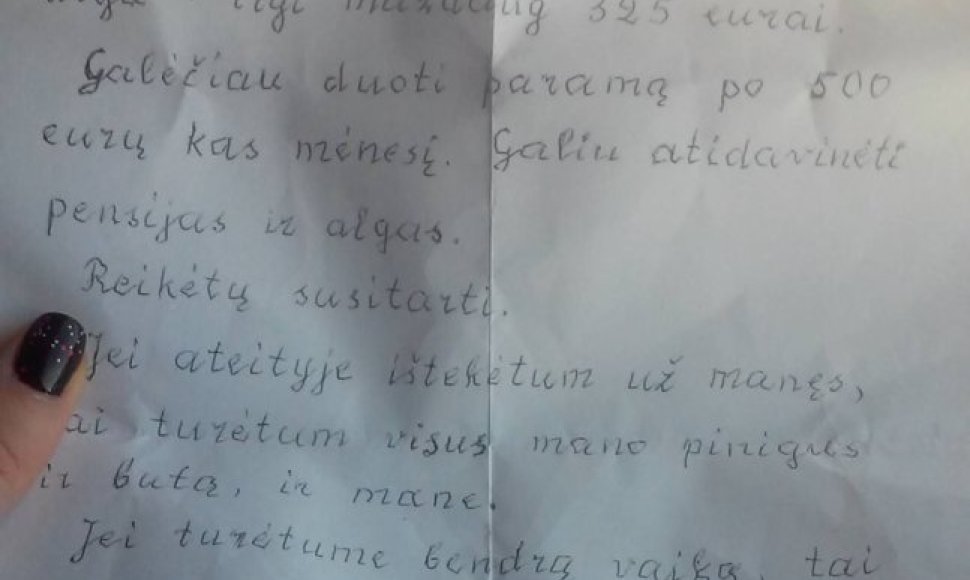 325 eurai.
Galėčiau duoti paramą po 500
eurų kas mėnesį. Galiu atidavinėti
pensijas ir algas.
Reikėtų susitarti.
Jei ateityje ištekėtum už manęs,
ai turėtum visus mano pinigus
ir butą, ir mane.
Jei turėtume bendrą vaiką, tai